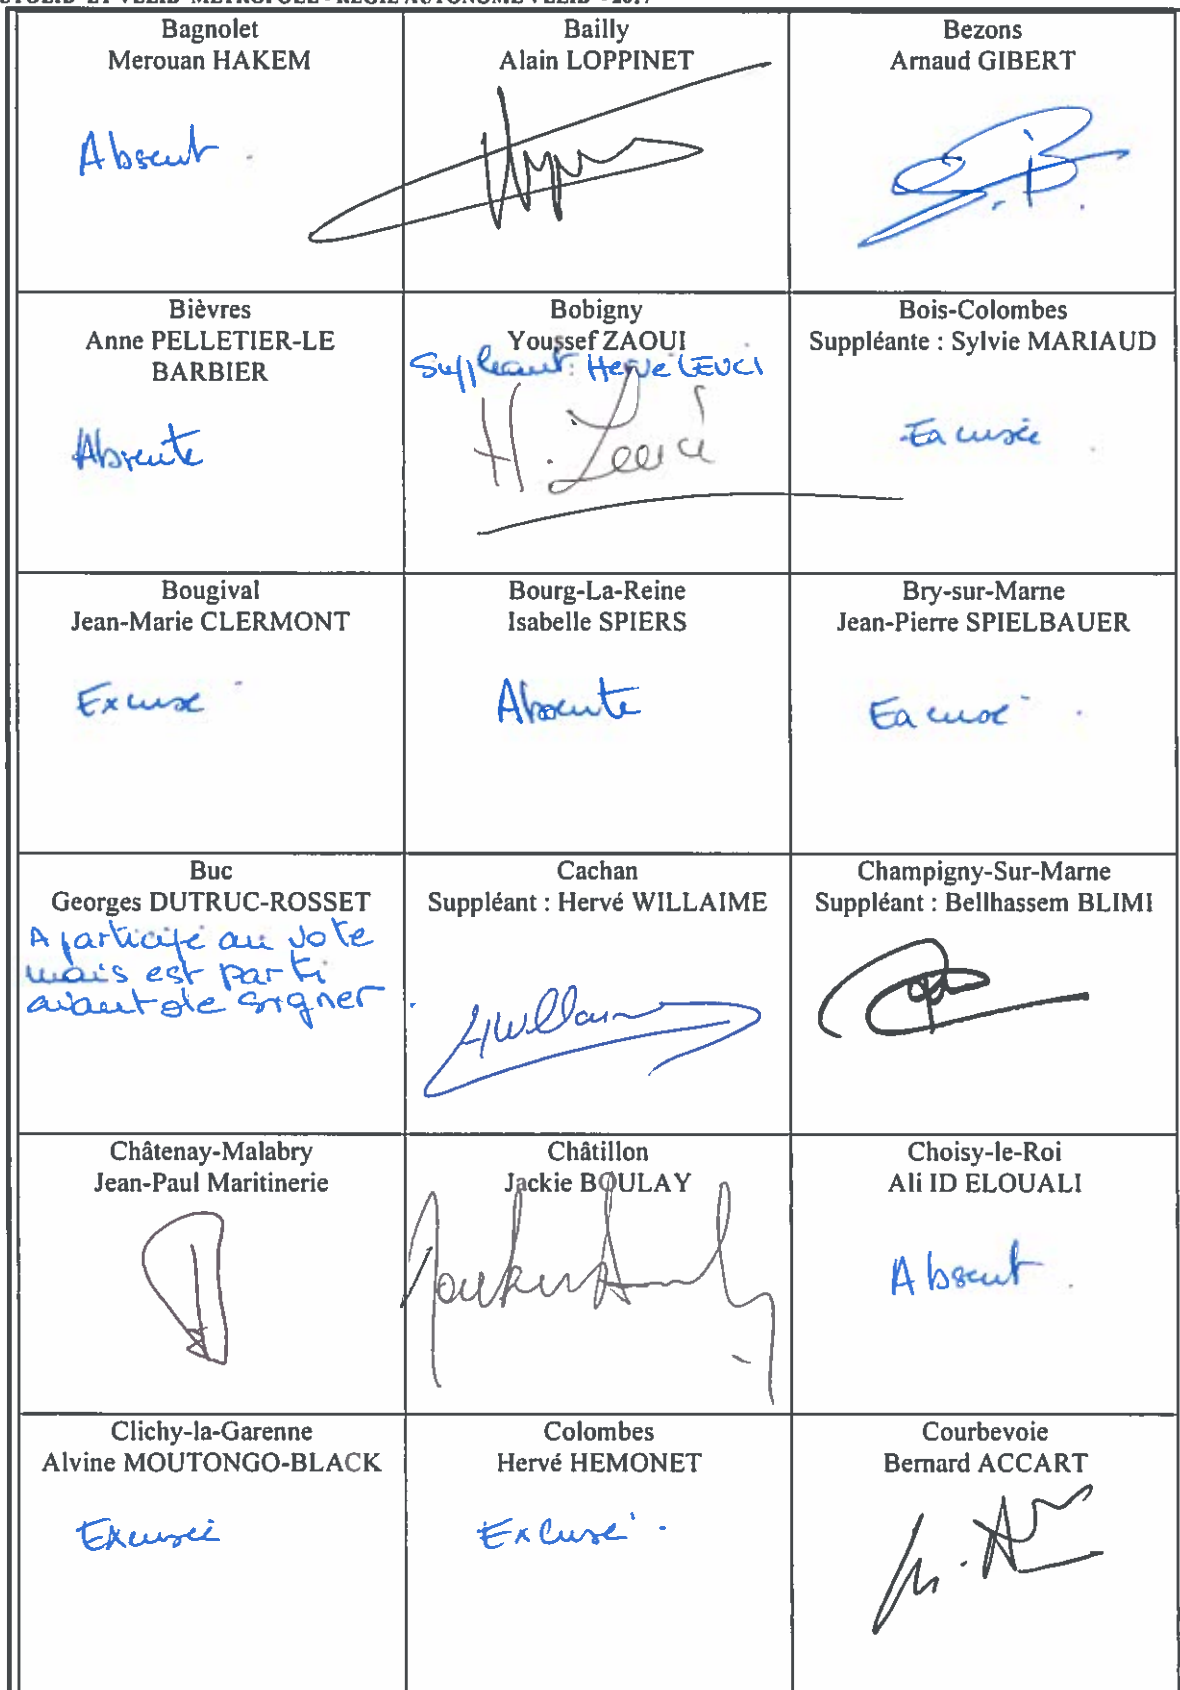 Bagnolet
Merouan HAKEM
Absent
Bailly
Alain LOPPINET
Bezons
Arnaud GIBERT
G.B.
Bièvres
Anne PELLETIER-LE
BARBIER
Absente
Bobigny
Youssef ZAOUI
Suppléant : Hervé LEUCI
H. Leuci
Bois-Colombes
Suppléante : Sylvie MARIAUD
Excusée
Bougival
Jean-Marie CLERMONT
Excusé
Bourg-La-Reine
Isabelle SPIERS
Absente
Bry-sur-Marne
Jean-Pierre SPIELBAUER
Excusé
Buc
Georges DUTRUC-ROSSET
A participé au vote
mais est parti
avant de signer
Cachan
Suppléant : Hervé WILLAIME
Champigny-Sur-Marne
Suppléant : Bellhassem BLIMI
Châtenay-Malabry
Jean-Paul Maritinerie
Châtillon
Jackie BOULAY
Choisy-le-Roi
Ali ID ELOUALI
Absent
Clichy-la-Garenne
Alvine MOUTONGO-BLACK
Excusée
Colombes
Hervé HEMONET
Excusé
Courbevoie
Bernard ACCART